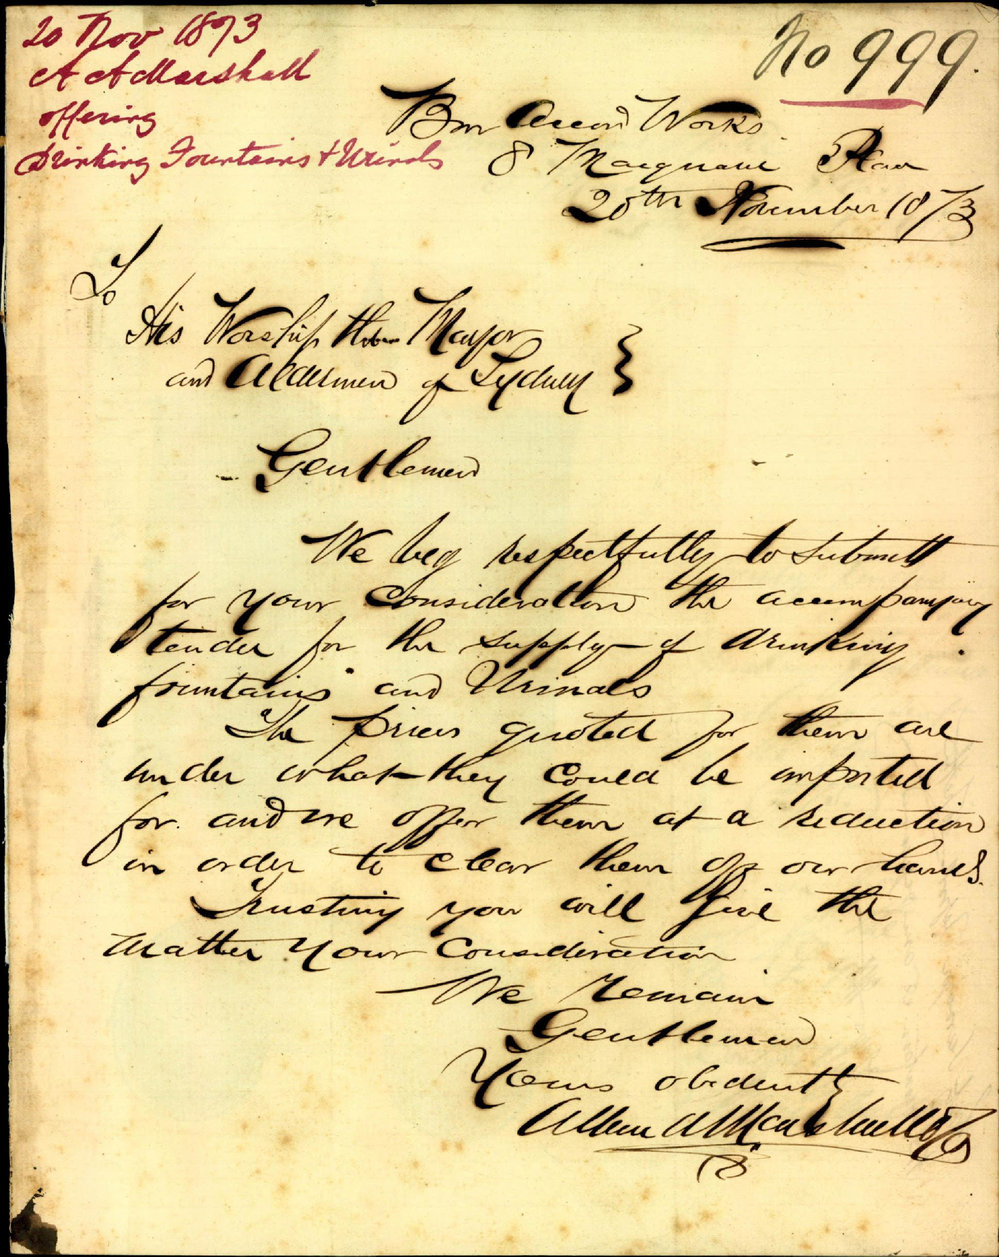 20 Nov 1873
A A Marshall
offering
Drinking Fountains & Urinals
No 999.
Bon Accord Works
8 Macquarie Place
20th November 1873
To
His Worship the Mayor
and Aldermen of Sydney
Gentlemen
We beg respectfully to submitt
for your Consideration the accompanying
tender for the supply of drinking
fountains and Urinals
The prices quoted for them are
under what they could be imported
for. and we offer them at a reduction
in order to clear them off our hands.
Trusting you will give the
matter your Consideration
We remain
Gentlemen
Yours obediently
A Marshall & Co